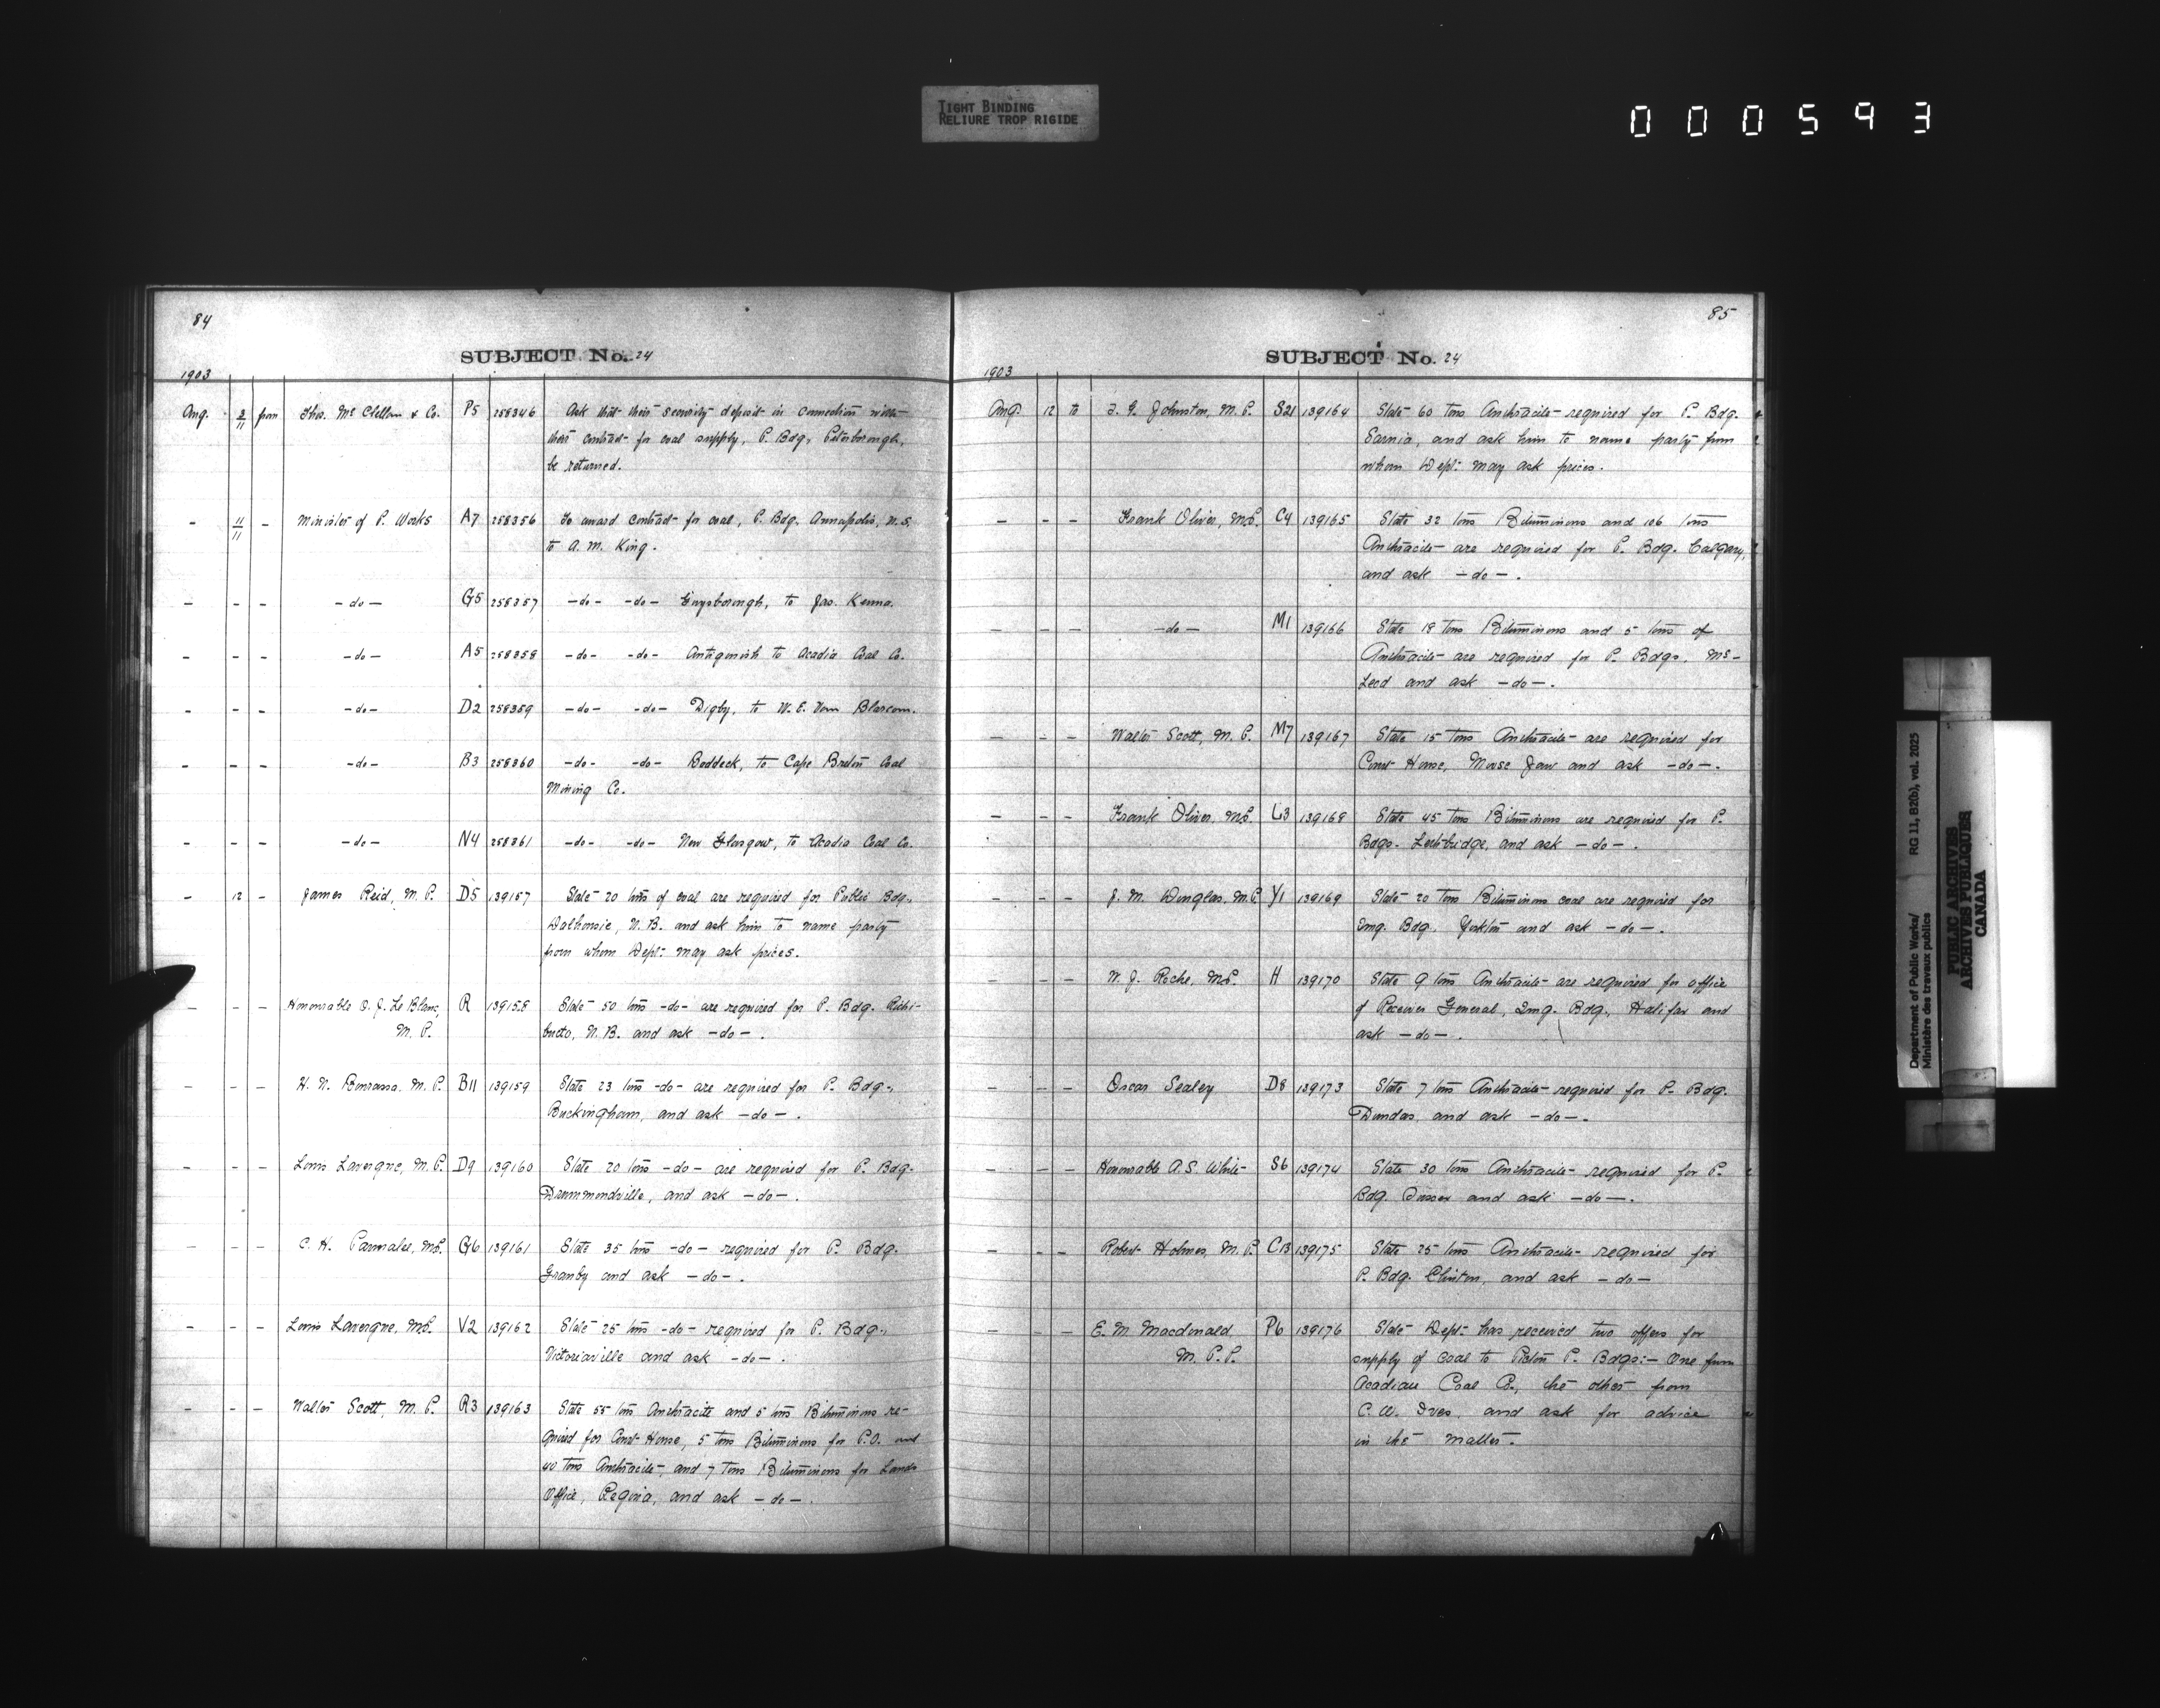 TIGHT BINDING
RELIURE TROP RIGIDE
000593
84
SUBJECT No. 24
1903
Aug. 3/11 from Thos. McClellan & Co. P5 258346 Ask that their security deposit in connection with
their contract for coal supply, P. Bdg, Peterborough,
be returned.
- 11/11 - Minister of P. Works A7 258356 To award contract for coal, P. Bdg. Annapolis, N.S.
to A. M. King.
- - - -do- G5 258357 -do- -do- Guysborough, to Jas. Kenna.
- - - -do- A5 258358 -do- -do- Antigonish to Acadia Coal Co.
- - - -do- D2 258359 -do- -do- Digby, to W. E. Van Blarcom.
- - - -do- B3 258360 -do- -do- Baddeck, to Cape Breton Coal
Mining Co.
- - - -do- N4 258361 -do- -do- New Glasgow, to Acadia Coal Co.
- 12 - James Reid, M. P. D5 139157 State 20 tons of coal are required for Public Bdg.,
Dalhousie, N. B. and ask him to name party
from whom Dept: may ask prices.
- - - Honourable O. J. Le Blanc, R 139158 State 50 tons -do- are required for P. Bdg. Richi-
M. P. bucto, N. B. and ask -do-.
- - - H. N. Bourassa. M. P. B11 139159 State 23 tons -do- are required for P. Bdg.,
Buckingham, and ask -do-.
- - - Louis Lavergne, M. P. D9 139160 State 20 tons -do- are required for P. Bdg.
Drummondville, and ask -do-.
- - - C. H. Parmalee, M.P. G6 139161 State 35 tons -do- required for P. Bdg.
Granby and ask -do-.
- - - Louis Lavergne, M.P. V2 139162 State 25 tons -do- required for P. Bdg.,
Victoriaville and ask -do-.
- - - Walter Scott, M. P. R3 139163 State 55 tons Anthracite and 5 tons Bituminous re-
quired for Court House, 5 tons Bituminous for P.O. and
40 tons Anthracite, and 7 tons Bituminous for Lands
Office, Regina, and ask -do-.
85
SUBJECT No. 24
1903
Aug. 12 to T. G. Johnston, M. P. S21 139164 State 60 tons Anthracite required for P. Bdg.
Sarnia, and ask him to name party from
whom Dept: may ask prices.
- - - Frank Oliver, M.P. C4 139165 State 32 tons Bituminous and 106 tons
Anthracite are required for P. Bdg. Calgary,
and ask -do-.
- - - -do- M1 139166 State 18 tons Bituminous and 5 tons of
Anthracite are required for P. Bdgs. Mc-
Leod and ask -do-.
- - - Walter Scott, M. P. M7 139167 State 15 tons Anthracite are required for
Court House, Moose Jaw and ask -do-.
- - - Frank Oliver, M.P. L3 139168 State 45 tons Bituminous are required for P.
Bdgs. Lethbridge, and ask -do-.
- - - J. M. Douglas, M.P. Y1 139169 State 20 tons Bituminous coal are required for
Img. Bdg. Yorkton and ask -do-.
- - - W. J. Roche, M.P. H 139170 State 9 tons Anthracite are required for office
of Receiver General, Img. Bdg., Halifax and
ask -do-.
- - - Oscar Sealey D8 139173 State 7 tons Anthracite required for P. Bdg.
Dundas, and ask -do-.
- - - Honourable A. S. White S6 139174 State 30 tons Anthracite required for P.
Bdg. Sussex and ask -do-.
- - - Robert Holmes, M. P. C13 139175 State 25 tons Anthracite required for
P. Bdg. Clinton, and ask -do-
- - - E. M. Macdonald P6 139176 State Dept: has received two offers for
M. P. P. supply of coal to Pictou P. Bdgs:- One from
Acadian Coal Co., the other from
C. W. Ives, and ask for advice
in the matter.
Department of Public Works/
Ministère des travaux publics
RG 11, B2(b), vol. 2025
PUBLIC ARCHIVES
ARCHIVES PUBLIQUES
CANADA